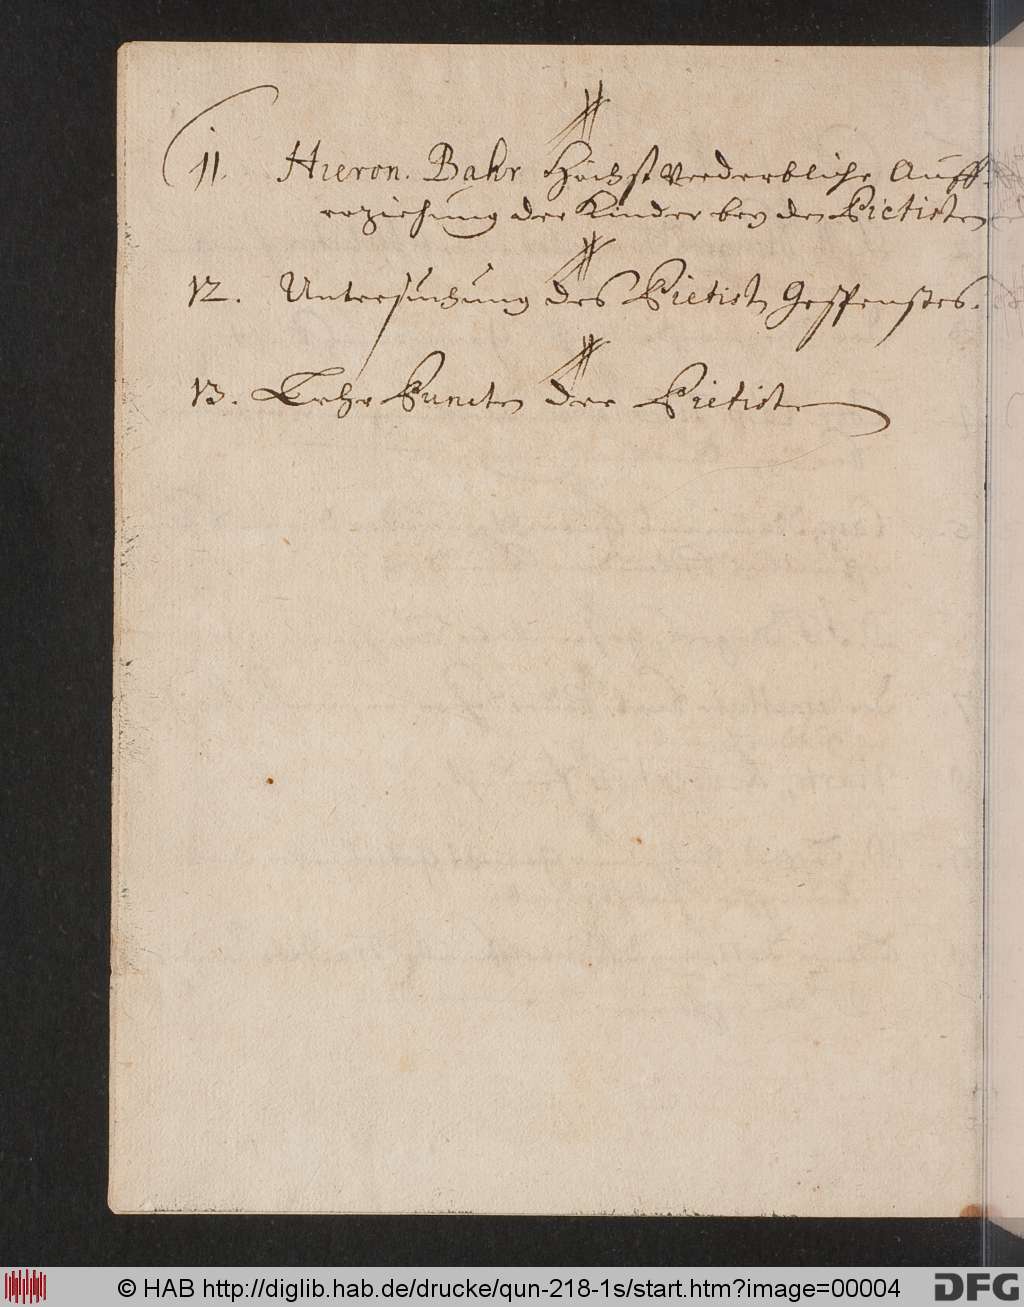 11. Hieron. Bahr Höchst Verderbliche Auff-
erziehung der Kinder bey den Pietisten
12. Untersuchung des Pietist Gespenstes.
13. Lehr Puncten der Pietisten
© HAB http://diglib.hab.de/drucke/qun-218-1s/start.htm?image=00004
DFG